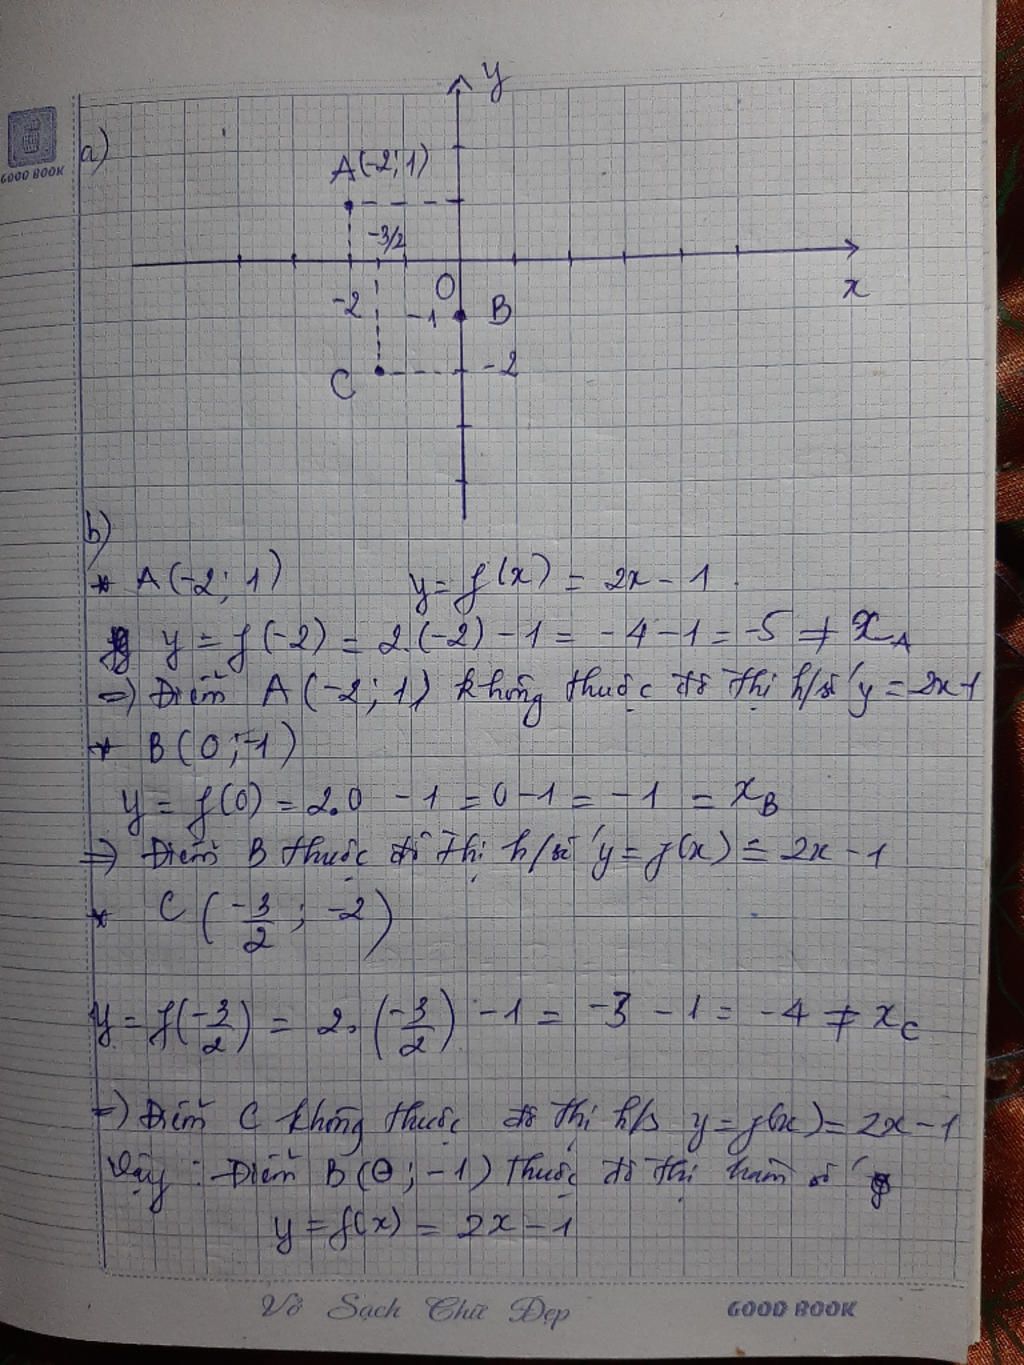 y
a)
GOOD BOOK
A(-2; 1)
-3/2
O
x
-2
-1
B
C
-2
b)
* A(-2; 1) y = f(x) = 2x - 1
y = f(-2) = 2.(-2) - 1 = -4 - 1 = -5 ≠ x_A
=) Điểm A(-2; 1) không thuộc đồ thị h/số y = 2x-1
* B(0; -1)
y = f(0) = 2.0 - 1 = 0 - 1 = -1 = x_B
=) Điểm B thuộc đồ thị h/số y = f(x) = 2x - 1
* C(-3/2; -2)
y = f(-3/2) = 2.(-3/2) - 1 = -3 - 1 = -4 ≠ x_C
=) Điểm C không thuộc đồ thị h/s y = f(x) = 2x - 1
Vậy: Điểm B(0; -1) thuộc đồ thị hàm số
y = f(x) = 2x - 1
Vở Sạch Chữ Đẹp GOOD BOOK